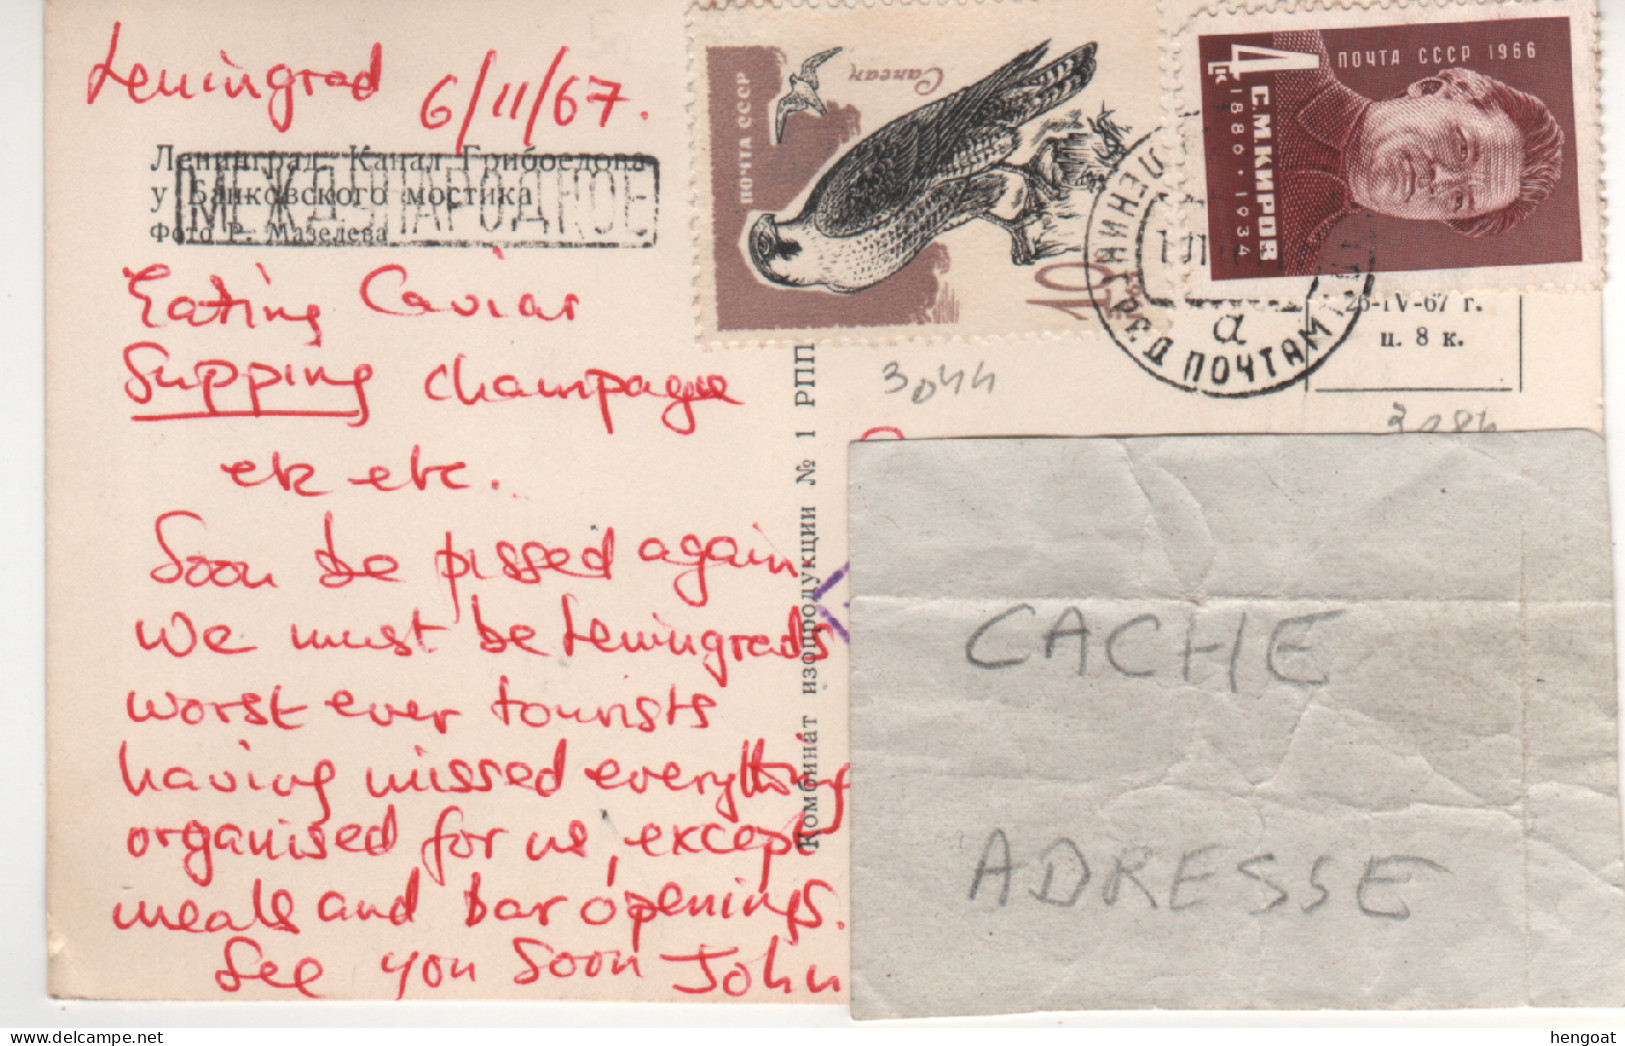 Leningrad 6/11/67.
Ленинград. Канал Грибоедова
у Банковского мостика
Фото Р. Мазелева
МЕЖДУНАРОДНОЕ
Eating Caviar
Supping champagne
etc etc.
Soon be pissed again
We must be Leningrads
worst ever tourists
having missed everything
organised for us, except
meals and bar openings.
See you soon John
Комбинат изопродукции № 1 РПП
ПОЧТА СССР
Сапсан
10
ПОЧТА СССР 1966
4
к
С.М.КИРОВ
1886 · 1934
ЛЕНИНГРАД ПОЧТАМТ
а
26-IV-67 г.
ц. 8 к.
3044
3184
CACHE
ADRESSE
hengoat